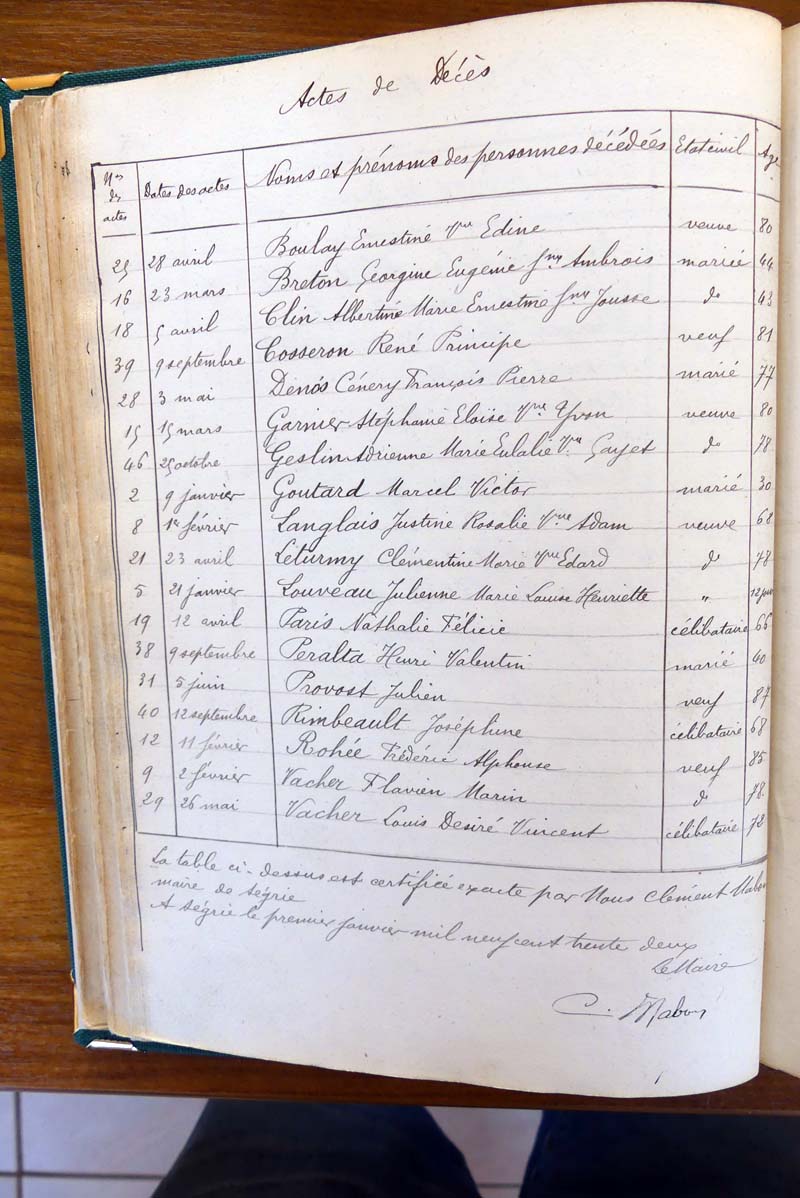 Actes de Décès
Nos des actes Dates des actes Noms et prénoms des personnes décédées Etat civil Age
25 28 avril Boulay Ernestine Vve Edine veuve 80
16 23 mars Breton Georgine Eugénie fme Ambrois mariée 44
18 5 avril Clin Albertine Marie Ernestine fme Jousse do 43
39 9 septembre Cosseron René Principe veuf 81
28 3 mai Denos Cénery François Pierre marié 77
15 15 mars Garnier Stéphanie Eloïse Vve Yvon veuve 80
46 25 octobre Geslin Adrienne Marie Eulalie Vve Gayet do 78
2 9 janvier Goutard Marcel Victor marié 30
8 1er février Langlais Justine Rosalie Vve Adam veuve 68
21 23 avril Leturmy Clémentine Marie Vve Edard do 78
5 21 janvier Louveau Julienne Marie Louise Henriette " 12 jours
19 12 avril Paris Nathalie Félicie célibataire 66
38 9 septembre Peralta Henri Valentin marié 40
31 5 juin Provost Julien veuf 87
40 12 septembre Rimbeault Joséphine célibataire 68
12 11 février Rohée Frédéric Alphonse veuf 85
9 2 février Vacher Flavien Marin do 78
29 26 mai Vacher Louis Desiré Vincent célibataire 72
La table ci-dessus est certifiée exacte par Nous Clément Mabon
maire de Ségrie
A Ségrie le premier janvier mil neuf cent trente deux
Le Maire
C. Mabon